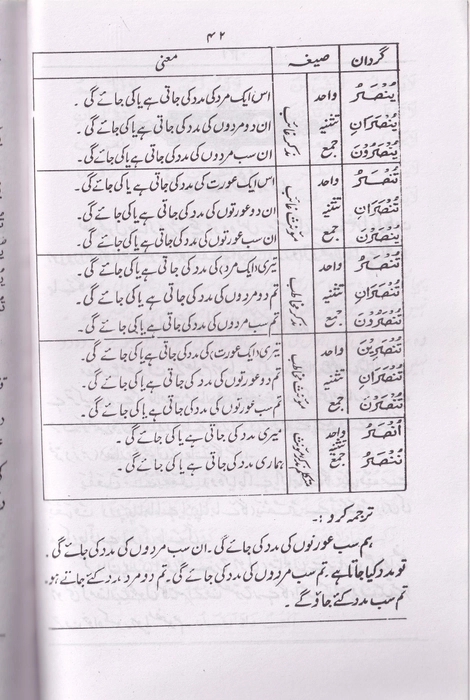 ۴۲
گردان صیغہ معنی
یُنْصَرُ واحد مذکر غائب اس ایک مرد کی مدد کی جاتی ہے یا کی جائے گی ۔
یُنْصَرَانِ تثنیہ ان دو مردوں کی مدد کی جاتی ہے یا کی جائے گی ۔
یُنْصَرُوْنَ جمع ان سب مردوں کی مدد کی جاتی ہے یا کی جائے گی ۔
تُنْصَرُ واحد مونث غائب اس ایک عورت کی مدد کی جاتی ہے یا کی جائے گی ۔
تُنْصَرَانِ تثنیہ ان دو عورتوں کی مدد کی جاتی ہے یا کی جائے گی ۔
یُنْصَرْنَ جمع ان سب عورتوں کی مدد کی جاتی ہے یا کی جائے گی ۔
تُنْصَرُ واحد مذکر مخاطب تیری (ایک مرد) کی مدد کی جاتی ہے یا کی جائے گی ۔
تُنْصَرَانِ تثنیہ تم دو مردوں کی مدد کی جاتی ہے یا کی جائے گی ۔
تُنْصَرُوْنَ جمع تم سب مردوں کی مدد کی جاتی ہے یا کی جائے گی ۔
تُنْصَرِیْنَ واحد مونث مخاطب تیری (ایک عورت) کی مدد کی جاتی ہے یا کی جائے گی ۔
تُنْصَرَانِ تثنیہ تم دو عورتوں کی مدد کی جاتی ہے یا کی جائے گی ۔
تُنْصَرْنَ جمع تم سب عورتوں کی مدد کی جاتی ہے یا کی جائے گی ۔
اُنْصَرُ واحد متکلم مذکر و مونث میری مدد کی جاتی ہے یا کی جائے گی ۔
نُنْصَرُ تثنیہ جمع ہماری مدد کی جاتی ہے یا کی جائے گی ۔
ترجمہ کرو :-
ہم سب عورتوں کی مدد کی جائے گی ۔ ان سب مردوں کی مدد کی جائے گی ۔
تو مدد کیا جاتا ہے ۔ تم سب مردوں کی مدد کی جائے گی ۔ تم دو مرد مدد کئے جاتے ہو ۔
تم سب مدد کئے جاؤ گے ۔